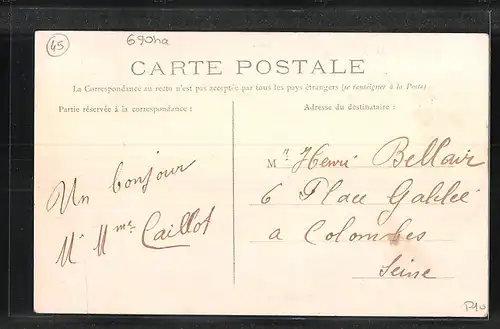 45
690ha
CARTE POSTALE
La Correspondance au recto n'est pas acceptée par tous les pays étrangers (se renseigner à la Poste)
Partie réservée à la correspondance :
Adresse du destinataire :
Un bonjour
Mr Mme Caillot
Mr Henri Bellair
6 Place Galilée
a Colombes
Seine